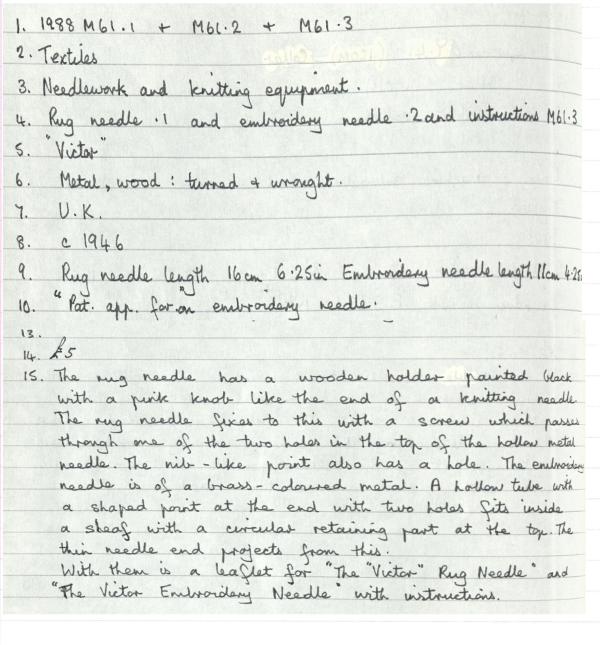 1. 1988 M61.1 + M61.2 + M61.3
2. Textiles
3. Needlework and knitting equipment.
4. Rug needle .1 and embroidery needle .2 and instructions M61.3
5. "Victor"
6. Metal, wood : turned + wrought.
7. U.K.
8. c 1946
9. Rug needle length 16cm 6.25in Embroidery needle length 11cm 4.25in
10. "Pat. app. for" on embroidery needle.
13.
14. £5
15. The rug needle has a wooden holder painted black
with a pink knob like the end of a knitting needle.
The rug needle fixes to this with a screw which passes
through one of the two holes in the top of the hollow metal
needle. The nib-like point also has a hole. The embroidery
needle is of a brass-coloured metal. A hollow tube with
a shaped point at the end with two holes fits inside
a sheaf with a circular retaining part at the top. The
thin needle end projects from this.
With them is a leaflet for "The "Victor" Rug Needle" and
"The Victor Embroidery Needle" with instructions.